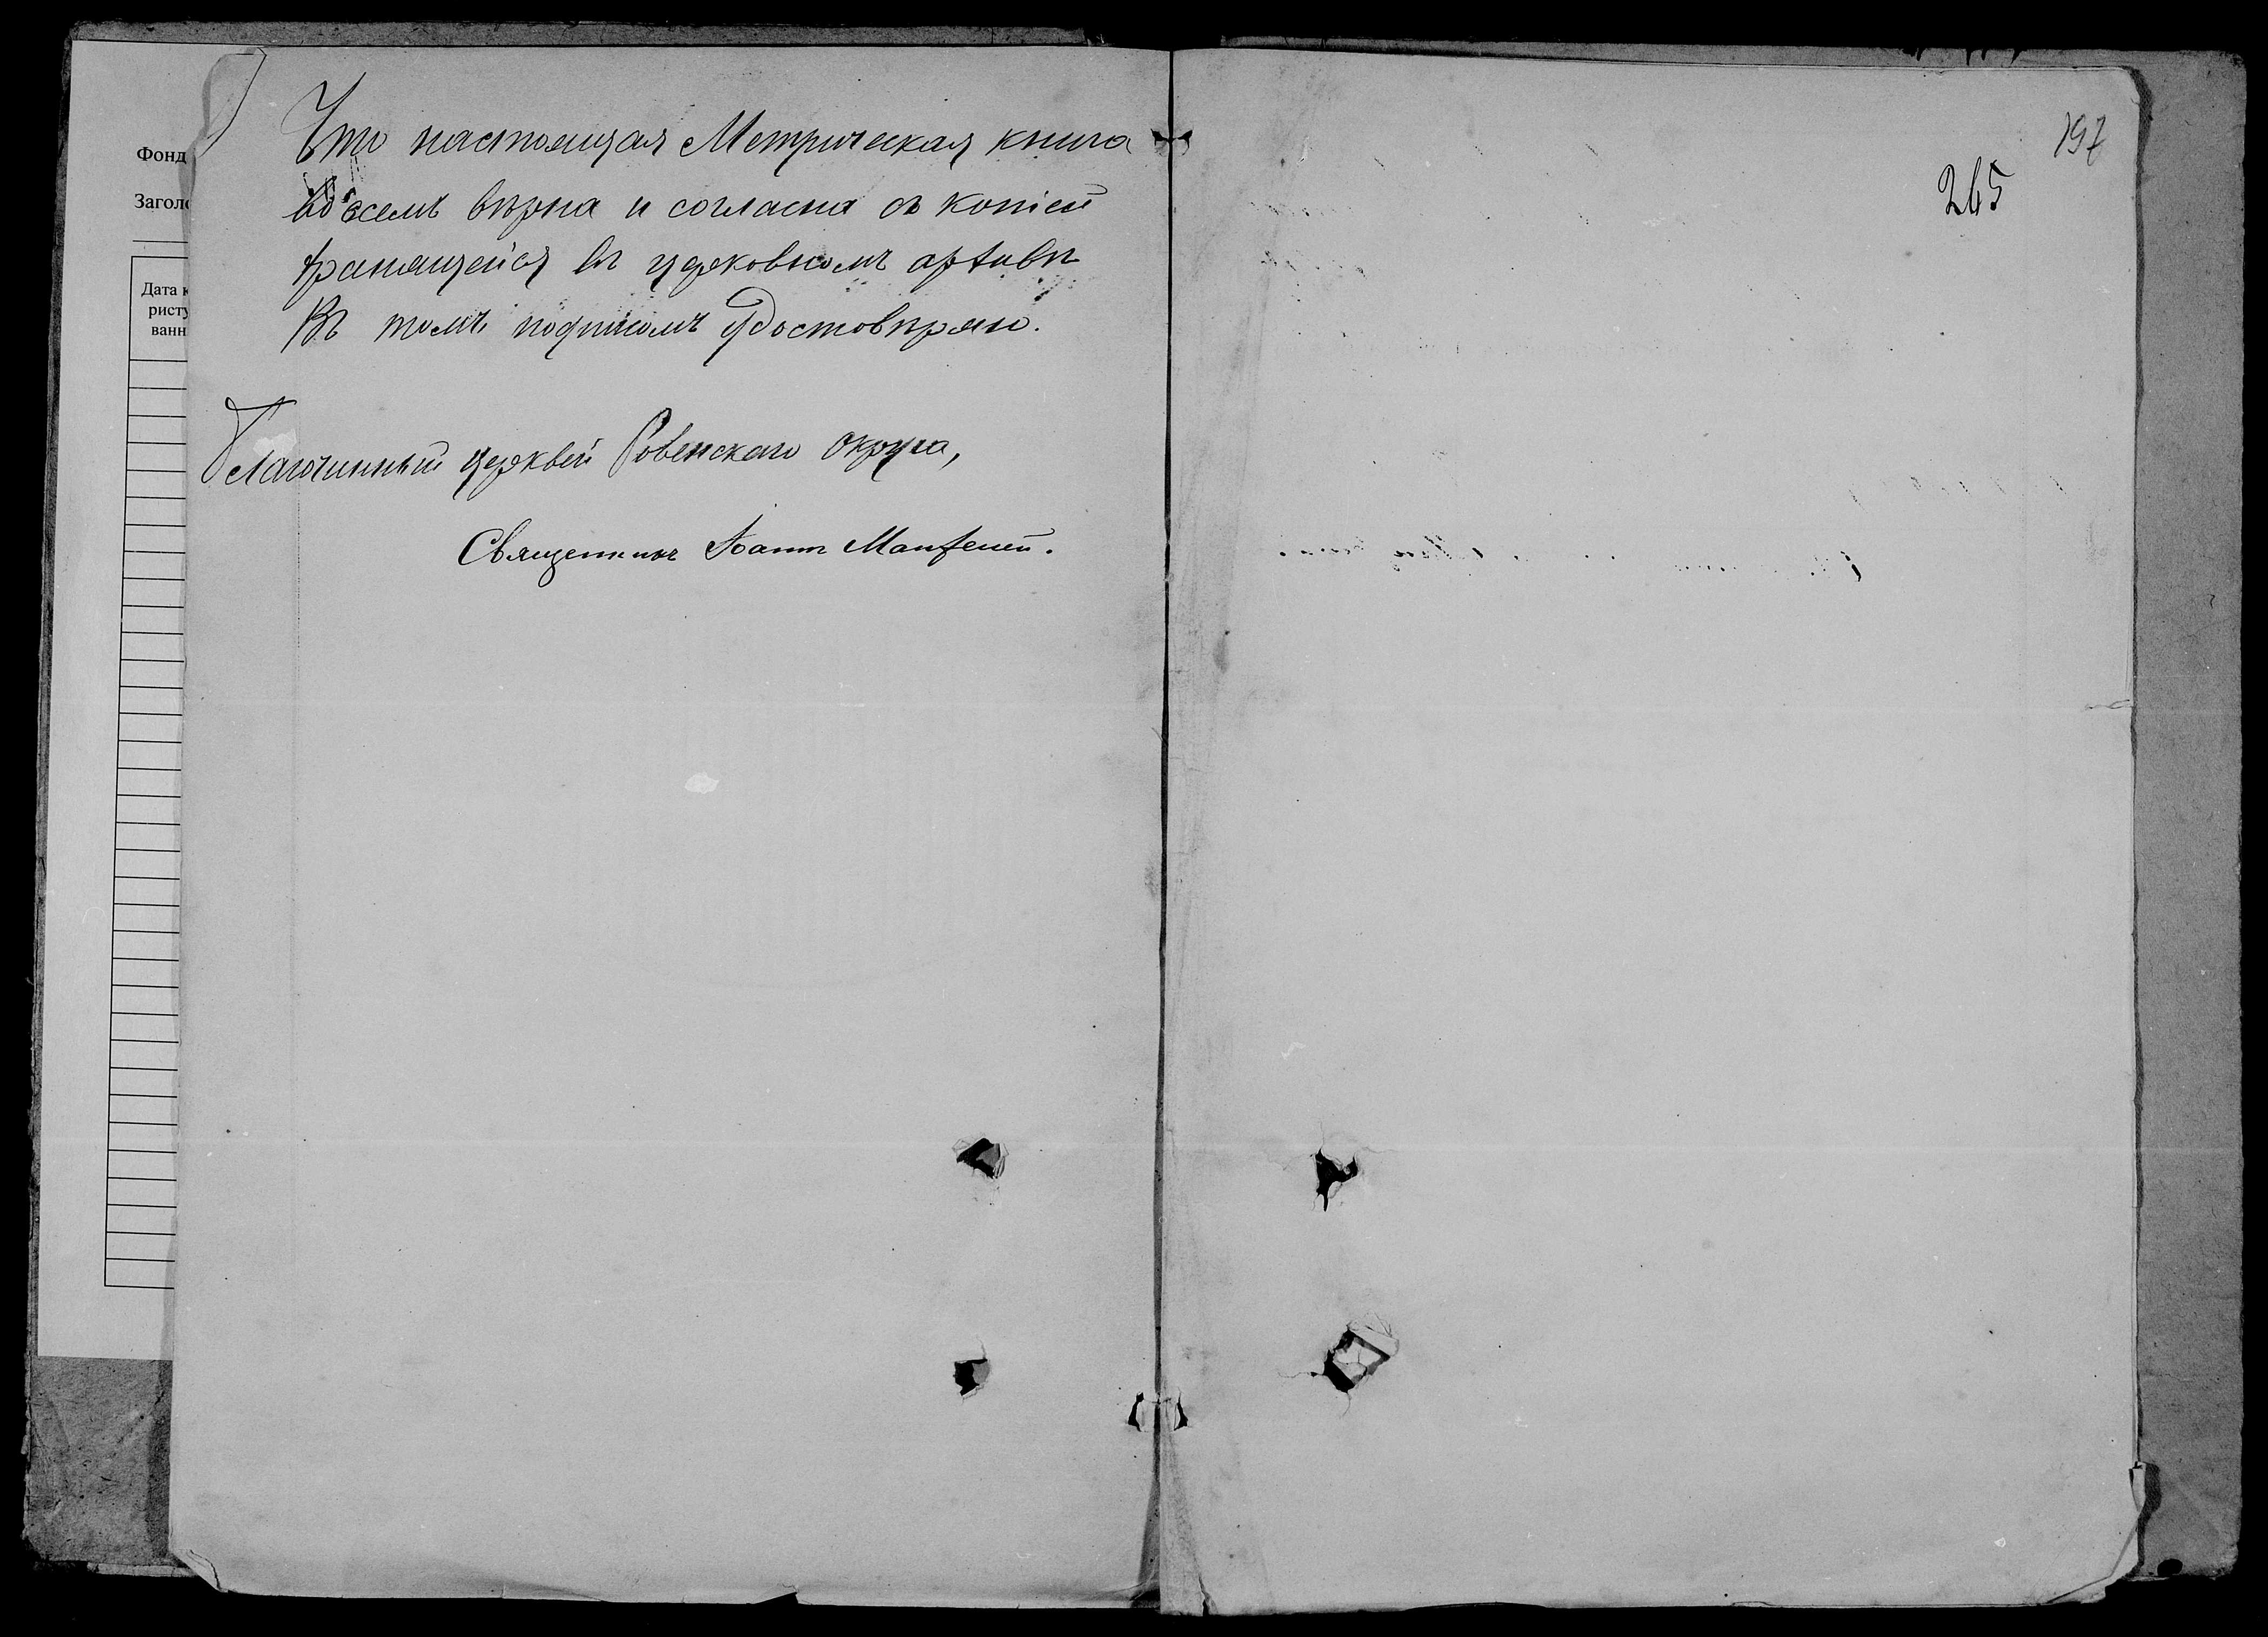 Фонд
Заголо
Дата к
ристу
ванн
Что настоящая Метрическая книга
во всемъ вѣрна и согласна съ копіей
хранящейся въ церковномъ архивѣ
Въ томъ подписомъ удостовѣряю.
Благочинный церквей Ровенскаго округа,
Священникъ Іоаннъ
197
265